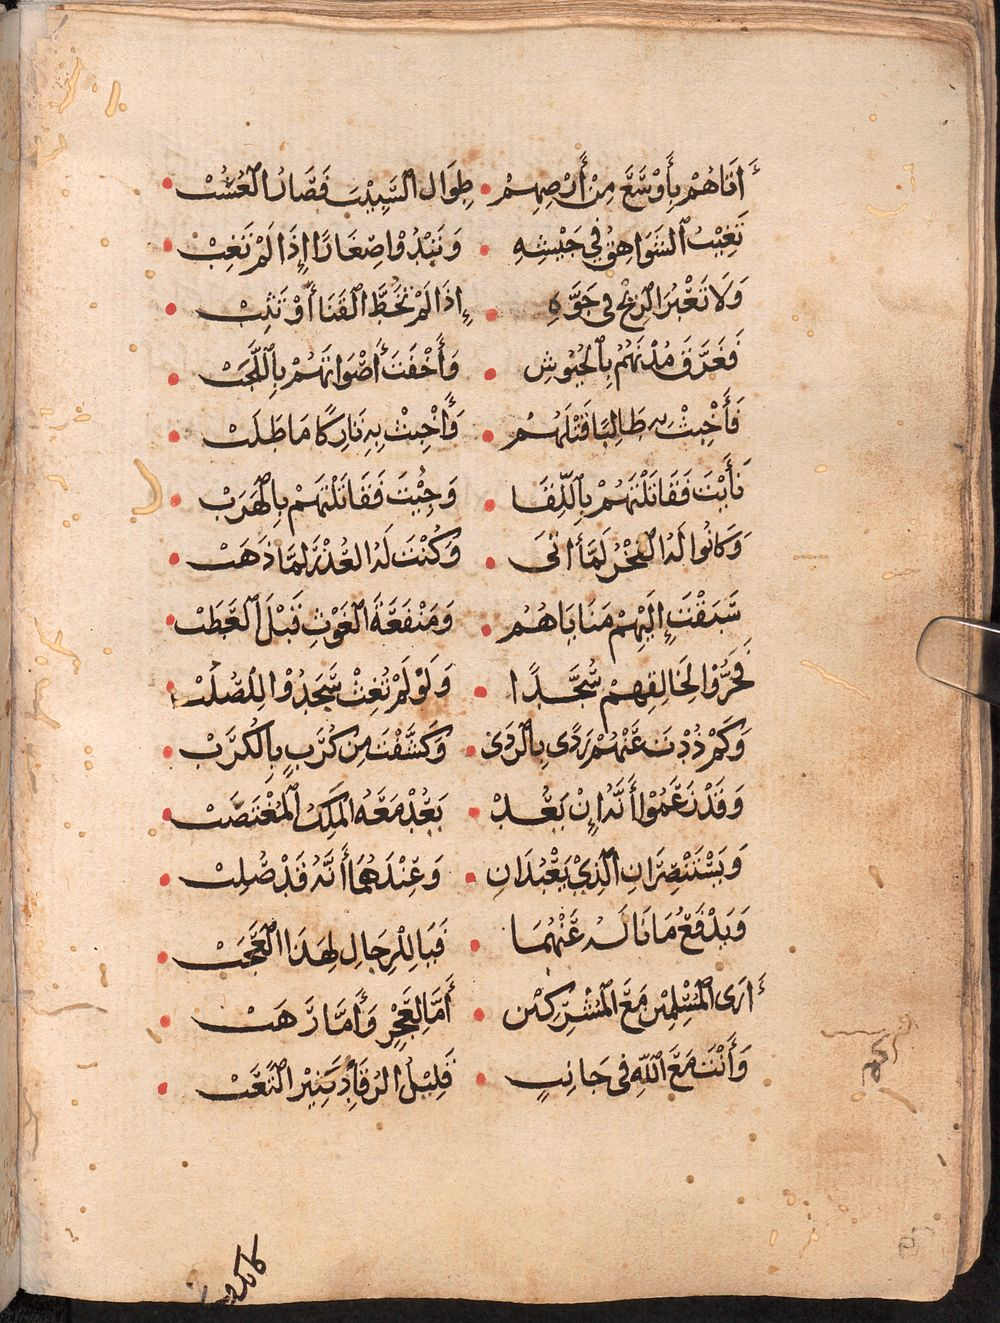 أَتَاهُمْ بِأَوْسَعَ مِنْ أَرْضِهِمْ • طِوَالَ السَّبِيبِ قِصَارَ الْعُسُبْ
تَغِيبُ الشَّوَاهِقُ فِي جَيْشِهِ • وَتَبْدُوا صِغَارًا إِذَا لَمْ تَغِبْ
وَلَا تَعْبُرُ الرِّيحُ فِي جَوِّهِ • إِذَا لَمْ تَخَطَّ الْقَنَا أَوْ تَثِبْ
فَغَرَّقَ مُدْنَهُمُ بِالْجُيُوشِ • وَأَخْفَتَ أَصْوَاتَهُمْ بِاللَّجَبْ
فَأَخْبِثْ بِهِ طَالِبًا قَتْلَهُمْ • وَأَخْبِثْ بِهِ تَارِكًا مَا طَلَبْ
نَأَيْتَ فَقَاتَلَهُمْ بِاللِّقَا • وَجِئْتَ فَقَاتَلَهُمْ بِالْهَرَبْ
وَكَانُوا لَهُ الْفَخْرَ لَمَّا أَتَى • وَكُنْتَ لَهُ الْعُذْرَ لَمَّا ذَهَبْ
سَبَقْتَ إِلَيْهِمْ مَنَايَاهُمُ • وَمَنْفَعَةُ الْغَوْثِ قَبْلَ الْعَطَبْ
فَخَرُّوا لِخَالِقِهِمْ سُجَّدًا • وَلَوْ لَمْ تُغِثْ سَجَدُوا لِلصُّلُبْ
وَكَمْ ذُدْتَ عَنْهُمْ رَدًى بِالرَّدَى • وَكَشَّفْتَ مِنْ كُرَبٍ بِالْكُرَبْ
وَقَدْ زَعَمُوا أَنَّهُ إِنْ يَعُدْ • يَعُدْ مَعَهُ الْمَلِكُ الْمُعْتَصِبْ
وَيَسْتَنْصِرَانِ الَّذِي يَعْبُدَانِ • وَعِنْدَهُمَا أَنَّهُ قَدْ صُلِبْ
وَيَدْفَعُ مَا نَالَهُ عَنْهُمَا • فَيَا لَلرِّجَالِ لِهَذَا الْعَجَبْ
أَرَى الْمُسْلِمِينَ مَعَ الْمُشْرِكِينَ • أَمَّا لِعَجْزٍ وَأَمَّا رَهَبْ
وَأَنْتَ مَعَ اللَّهِ فِي جَانِبٍ • قَلِيلُ الرُّقَادِ كَثِيرُ التَّعَبْ